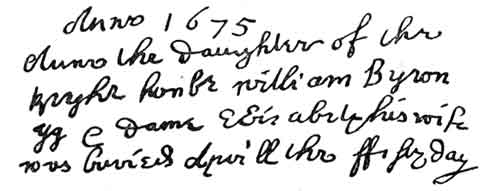 Anno 1675
Anne the Daughter of the
Ryght honble william Byron
& Dame Elizabeth his wife
was buried Aprill the day